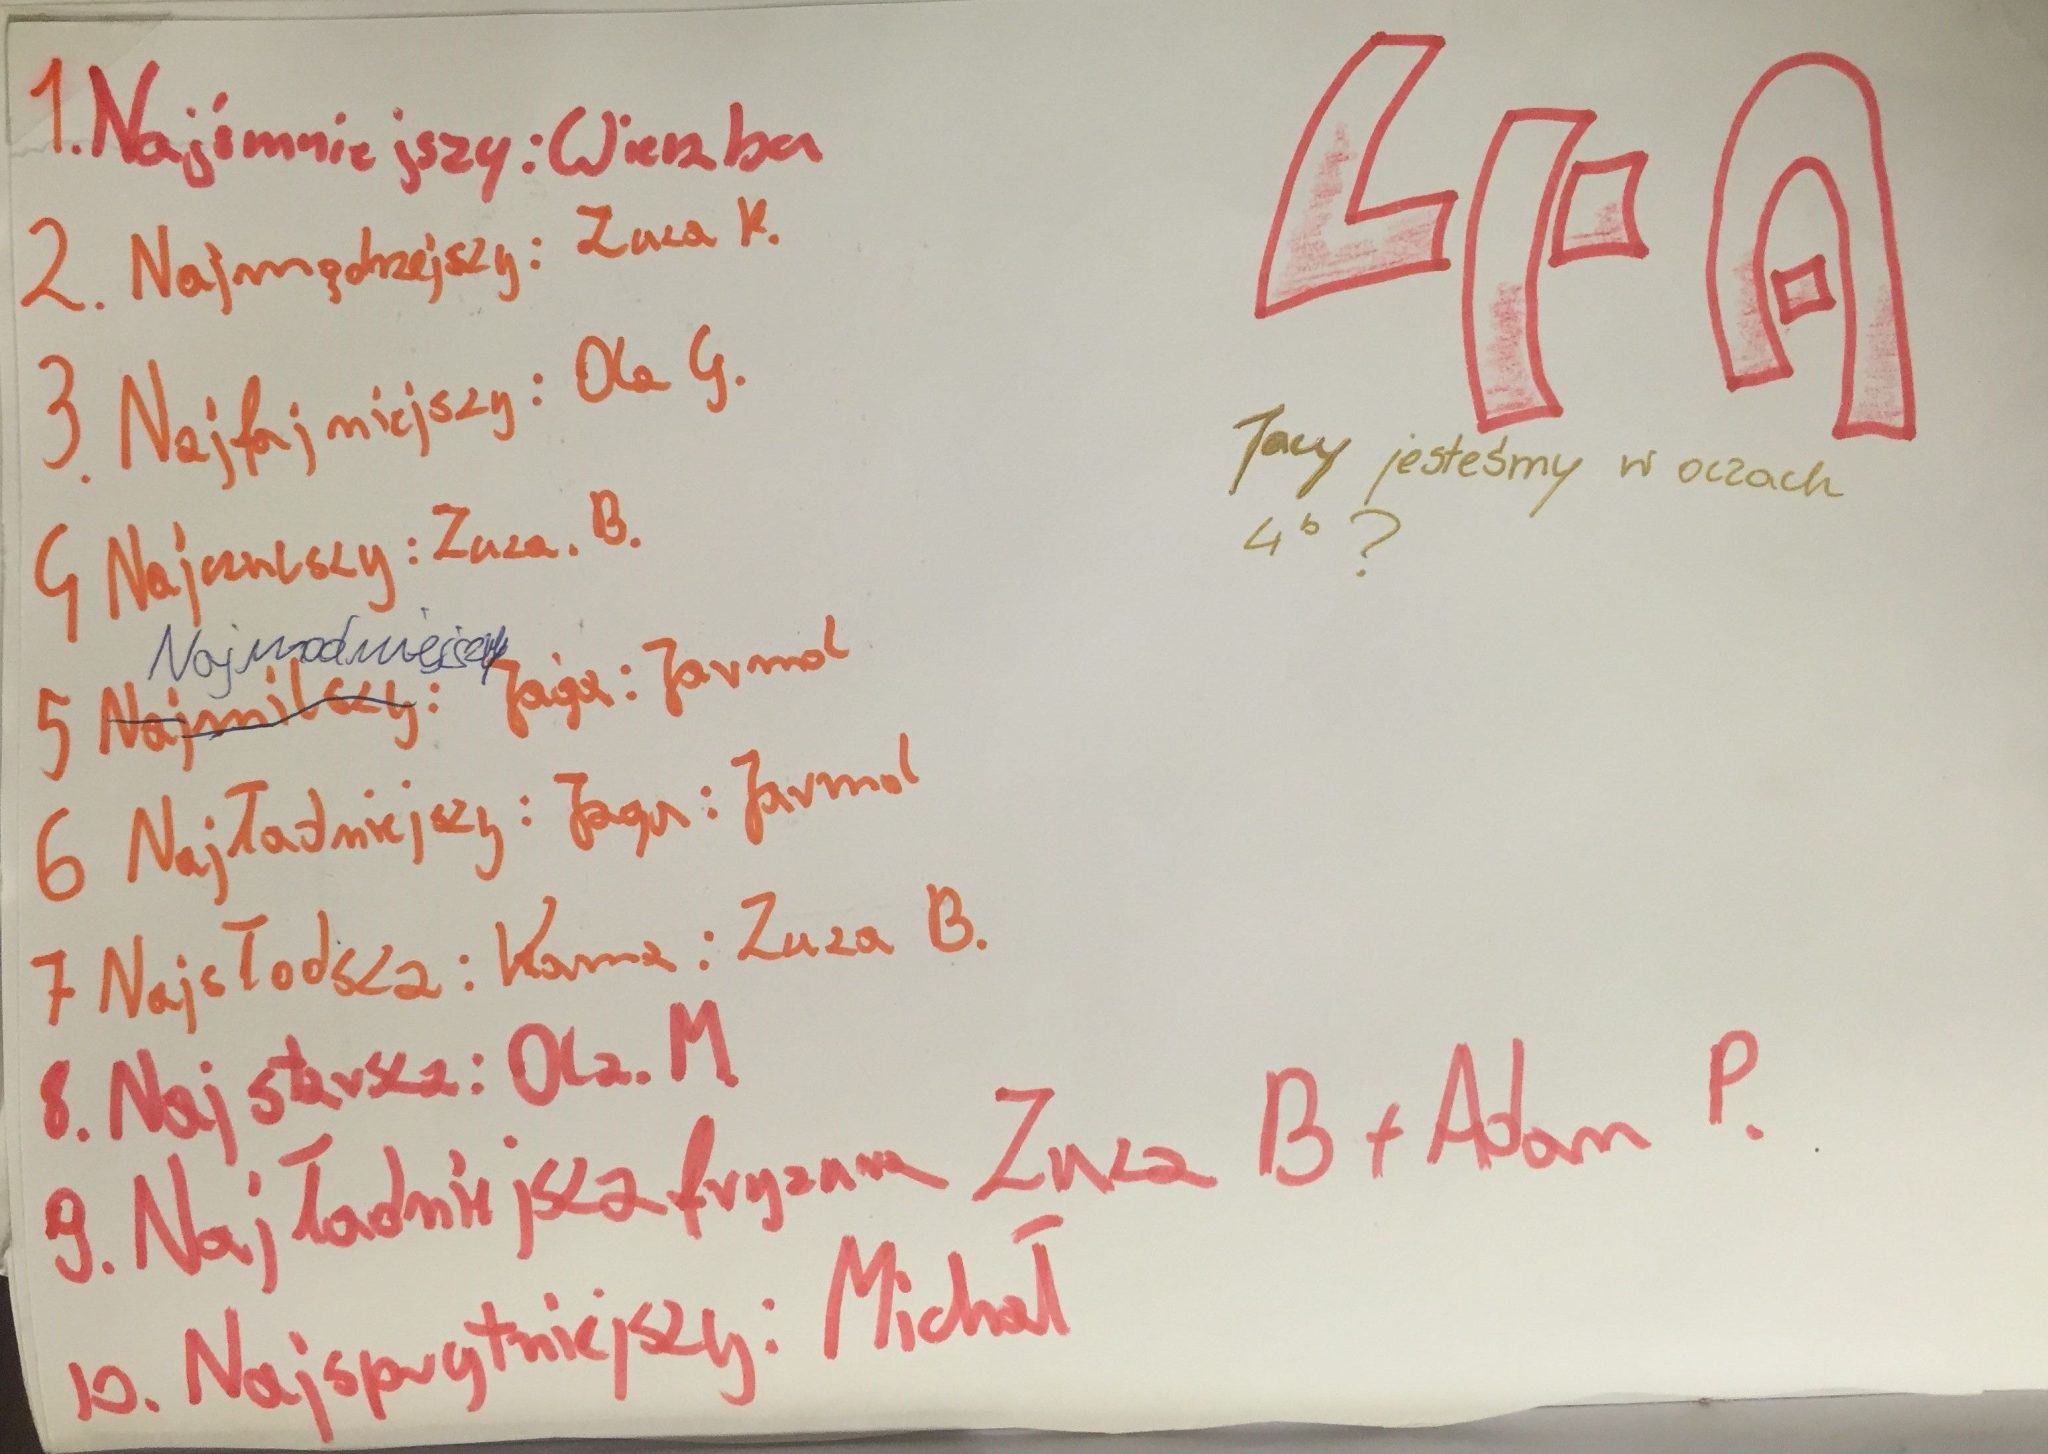 1. Najśmniejszy: Wierzba
2. Najmądrzejszy: Zuza K.
3. Najfajniejszy: Ola G.
4 Najczulszy: Zuza. B.
Najmodniejszy
5 Najmilszy: Jaga: Jarmol
6 Najładniejszy: Jaga: Jarmol
7 Najsłodsza: Kama: Zuza B.
8. Najstarsza: Ola. M
9. Najładniejsza fryzura Zuza B + Adam P.
10. Najsprytniejszy: Michał
4A
Jacy jesteśmy w oczach
4b?